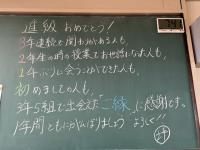 進級おめでとう！
3年連続で関わりがある人も、
2年生の時の授業でお世話になった人も、
1年ぶりに会うことができた人も、
初めましての人も、
3年5組で出会えた「ご縁」に感謝です。
1年間ともにがんばりましょう よろしく!!